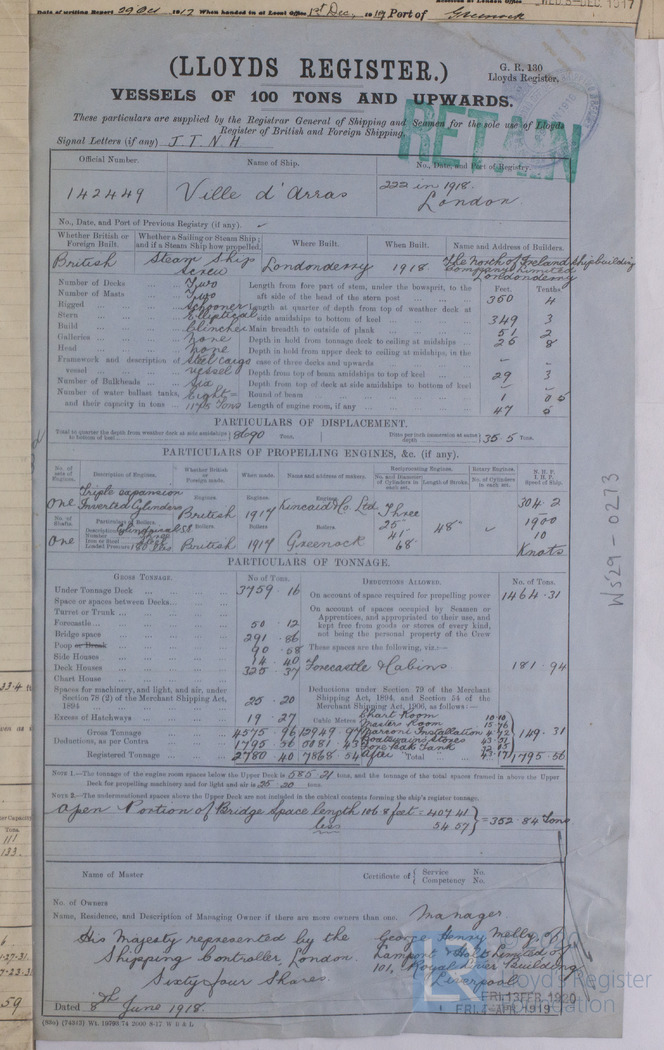 Date of writing Report 29 Oct 1917 When handed in at Local Office 1st Dec. 1917 Port of Greenock
WED. 5 - DEC. 1917
(LLOYDS REGISTER.)
G. R. 130
Lloyds Register.
VESSELS OF 100 TONS AND UPWARDS.
These particulars are supplied by the Registrar General of Shipping and Seamen for the sole use of Lloyds
Register of British and Foreign Shipping.
RETAIN
Signal Letters (if any) J T N H
Official Number. Name of Ship. No., Date, and Port of Registry.
142449 Ville d'Arras 222 in 1918.
London
No., Date, and Port of Previous Registry (if any).
Whether British or Foreign Built. Whether a Sailing or Steam Ship; and if a Steam Ship how propelled. Where Built. When Built. Name and Address of Builders.
British Steam Ship Screw Londonderry 1918 The North of Ireland Shipbuilding
Company Limited
Londonderry
Number of Decks Two Length from fore part of stem, under the bowsprit, to the Feet. Tenths.
Number of Masts Two aft side of head of the stern post 360 4
Rigged Schooner Length at quarter of depth from top of weather deck at
Stern Elliptical side amidships to bottom of keel 349 3
Build Clincher Main breadth to outside of plank 51 2
Galleries None Depth in hold from tonnage deck to ceiling at midships 26 8
Head None Depth in hold from upper deck to ceiling at midships, in the
Framework and description of vessel Steel Cargo vessel case of three decks and upwards – –
Depth from top of beam amidships to top of keel 29 3
Number of Bulkheads Six Depth from top of deck at side amidships to bottom of keel – –
Number of water ballast tanks, Eight = Round of beam 1 05
and their capacity in tons 1175 Tons Length of engine room, if any 47 5
PARTICULARS OF DISPLACEMENT.
Total to quarter the depth from weather deck at side amidships to bottom of keel 8690 Tons. Ditto per inch immersion at same depth 35 5 Tons.
PARTICULARS OF PROPELLING ENGINES, &c. (if any).
No. of sets of Engines. Description of Engines. Whether British or Foreign made. When made. Name and address of makers. Reciprocating Engines. Rotary Engines. N. H. P.
No. and Diameter of Cylinders in each set. Length of Stroke. No. of Cylinders in each set. I. H. P.
Speed of Ship.
One Triple expansion Inverted Cylinders Engines. British Engines. 1917 Engines. Kincaid & Co. Ltd. Three 304.2
No. of Shafts. Particulars of Boilers. Boilers Boilers Boilers 25" 48" 1900
One Description Cylindrical 41" 10
Number
Iron or Steel Steel 68" Knots
Loaded Pressure 180 lbs British 1917 Greenock
PARTICULARS OF TONNAGE.
GROSS TONNAGE. No. of Tons. DEDUCTIONS ALLOWED. No. of Tons.
Under Tonnage Deck 3759.16 On account of space required for propelling power 1464.31
Space or spaces between Decks On account of spaces occupied by Seamen or
Turret or Trunk Apprentices, and appropriated to their use, and
Forecastle 50.12 kept free from goods or stores of every kind,
Bridge space 291.86 not being the personal property of the Crew
Poop or Break 90.58 These spaces are the following, viz.:—
Side Houses 14.40
Deck Houses 325.37 Forecastle & Cabins 181.94
Chart House
Spaces for machinery, and light, and air, under Deductions under Section 79 of the Merchant
Section 78 (2) of the Merchant Shipping Act, Shipping Act, 1894, and Section 54 of the
1894 25.20 Merchant Shipping Act, 1906, as follows:—
Excess of Hatchways 19.27 Cubic Metres Chart Room 10.10
Masters Room 15.76
Gross Tonnage 4575.96 12949.97 Marconi Installation 4.72 149.31
Deductions, as per Contra 1795.56 5081.43 Boatswains Stores 43.31
Fore Peak Tank
Registered Tonnage 2780.40 7868.54 After Total 1795.56
NOTE 1.—The tonnage of the engine room spaces below the Upper Deck is 585.21 tons, and the tonnage of the total spaces framed in above the Upper
Deck for propelling machinery and for light and air is 25.20 tons.
NOTE 2.—The undermentioned spaces above the Upper Deck are not included in the cubical contents forming the ship's register tonnage.
Open Portion of Bridge Space length 106.8 feet = 407.41
less 54.57 } = 352.84 Tons
Name of Master Certificate of { Service No.
Competency No.
No. of Owners
Name, Residence, and Description of Managing Owner if there are more owners than one. Manager
His Majesty represented by the George Henry Melly, of
Shipping Controller, London. Lamport & Holt Limited of
101, Royal Liver Building
Sixty four Shares. Liverpool
FRI. 13 FEB. 1920
FRI. 4 - APR. 1919
Dated 8th June 1918.
(88o) (74943) Wt. 19780.74 2000 8-17 W B & L
WS29-0273
Lloyd's Register
Foundation